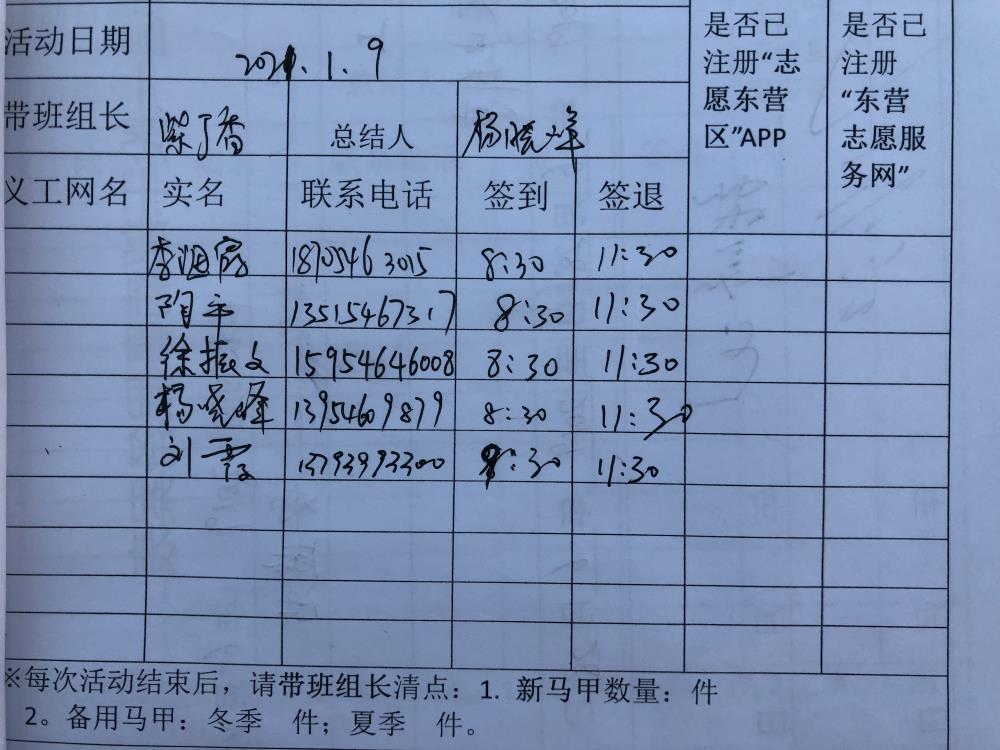 活动日期 2021.1.9 是否已注册“志愿东营区”APP 是否已注册“东营志愿服务网”
带班组长 柴丁香 总结人 杨晓峰
义工网名 实名 联系电话 签到 签退
18705463015 8:30 11:30
13515467317 8:30 11:30
徐振文 15954646008 8:30 11:30
杨晓峰 13954609879 8:30 11:30
刘霞 13793993300 8:30 11:30
※每次活动结束后，请带班组长清点：1. 新马甲数量： 件
2。备用马甲：冬季 件；夏季 件。